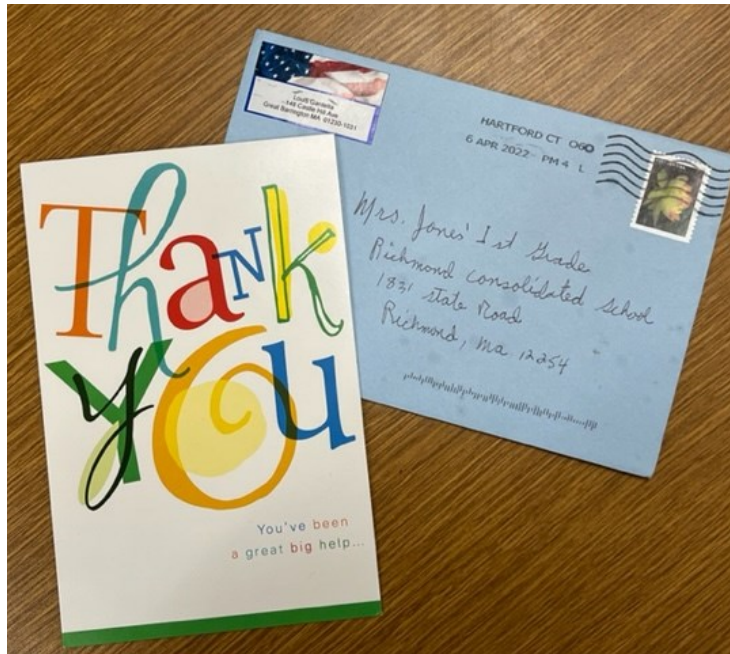 Thank
you
You've been
a great big help...
148 Castle Hill Ave
Great Barrington MA 01230-1031
HARTFORD CT 060
6 APR 2022 PM 4 L
Mrs. Jones' 1st Grade
Richmond Consolidated School
1831 State Road
Richmond, Ma 12254